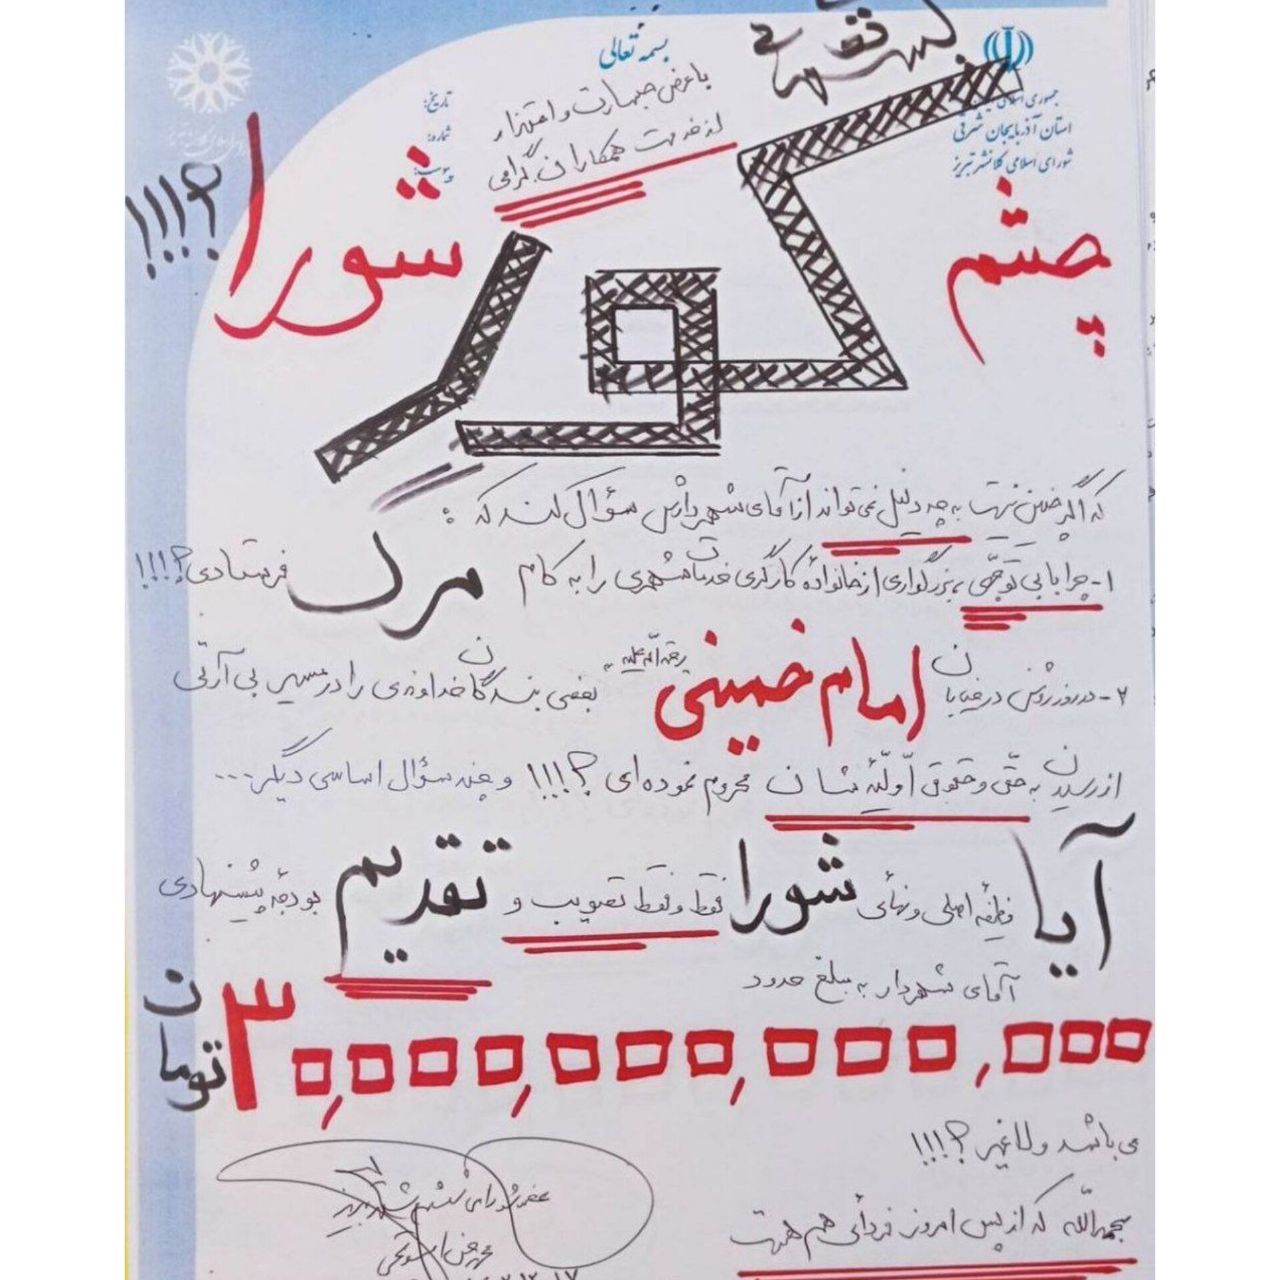 بسمه تعالی
جمهوری اسلامی
استان آذربایجان شرقی
شورای اسلامی کلانشهر تبریز
تاریخ:
شماره:
پیوست:
با عرض جسارت و اعتذار
از خدمت همکاران گرامی
چشم کور شورا !!!؟
که اگر چنین نیست به چه دلیل نمی‌تواند از آقای شهردارش سؤال کند که :
۱- چرا با بی توجّهی، بزرگواری از خانواده کارگری خدمات شهری را به کام مرگ فرستادی؟!!!
۲- در روز روشن در خیابان امام خمینی رحمة الله علیه بعضی بندگان خداوندی را در مسیر بی آرتی
از رسیدن به حقّ و حقوق اوّلیّه‌شان محروم نموده‌ای ؟!!! و چند سؤال اساسی دیگر...
آیا وظیفه اصلی و نهائی شورا فقط و فقط تصویب و تقدیم بودجه پیشنهادی
آقای شهردار به مبلغ حدود
۳۰,۰۰۰,۰۰۰,۰۰۰,۰۰۰ تومان
می باشد و لا غیر ؟!!!
بحمدالله که از پس امروز فردائی هم هست
عضو شورای ششم شهر تبریز